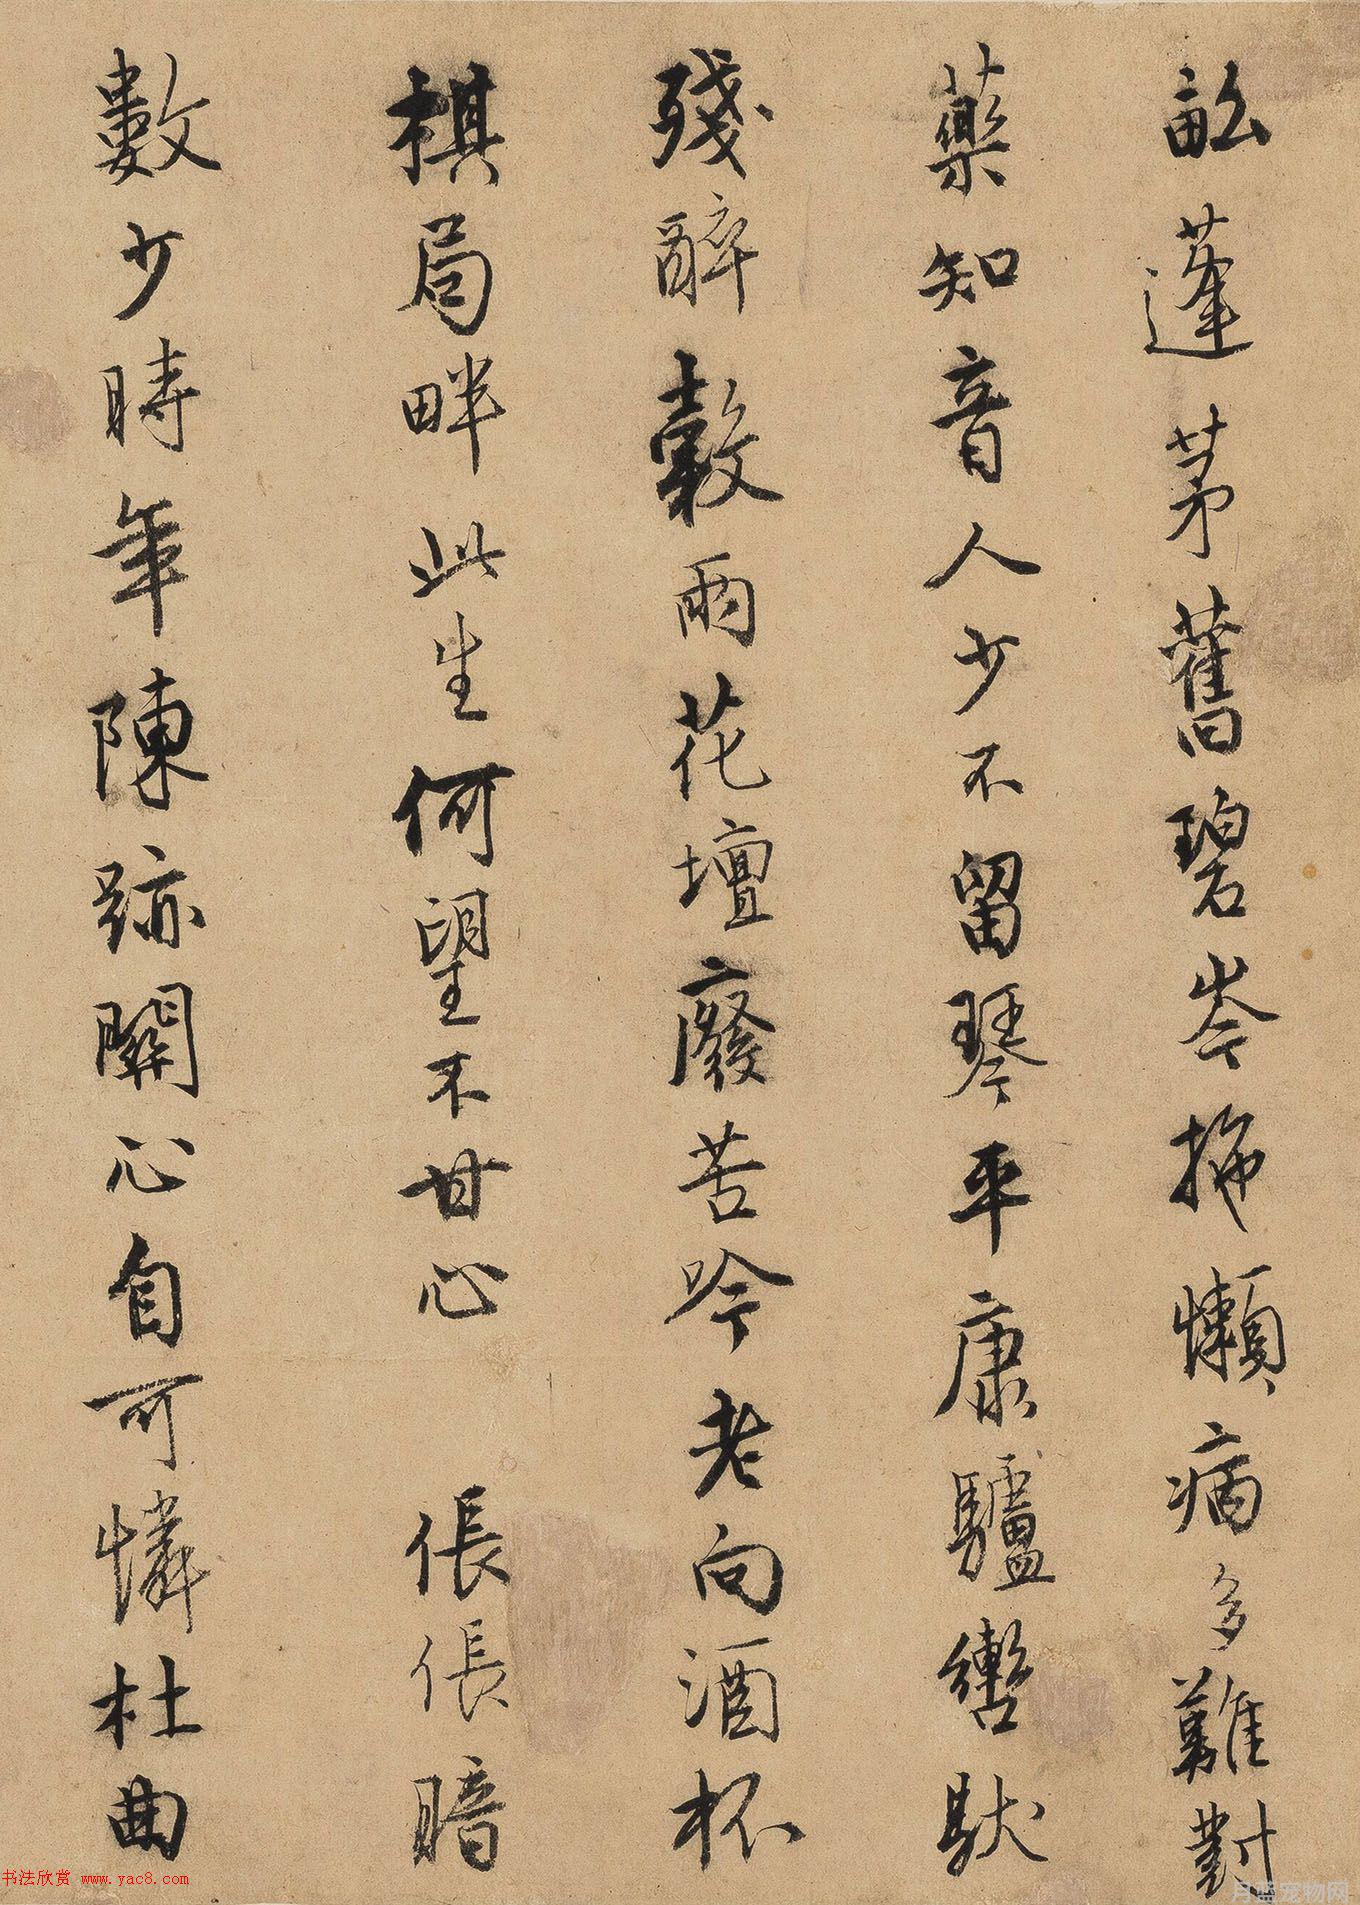 畝蓬茅舊碧岑拖懶病多難對
藥知音人少不留琴平康驢轡馱
殘醉穀雨花壇廢苦吟老向酒杯
棋局畔此生何望不甘心 倀倀暗
數少時年陳跡關心自可憐杜曲
书法欣赏 www.yac8.com
月蓝宠物网